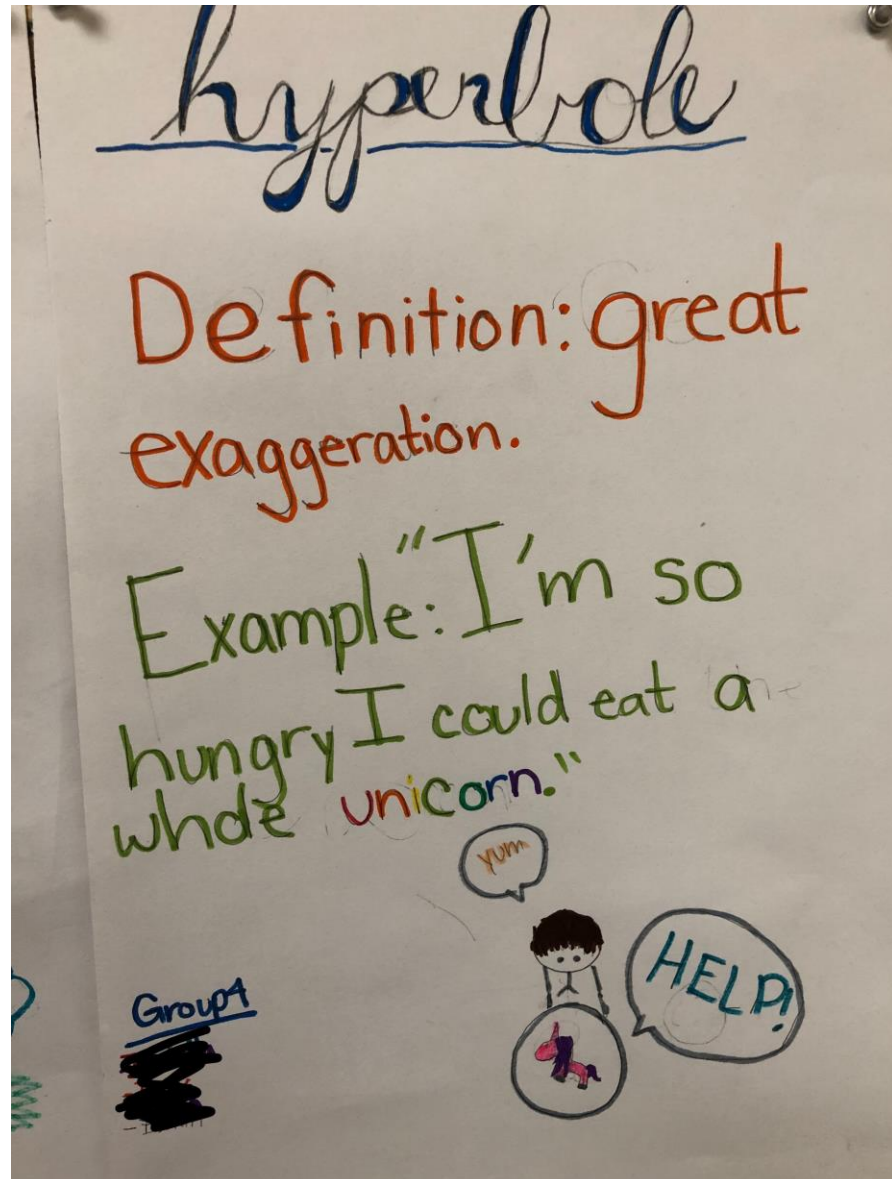 hyperbole
Definition: great
exaggeration.
Example: "I'm so
hungry I could eat a
whole unicorn."
yum
HELP!
Group 4